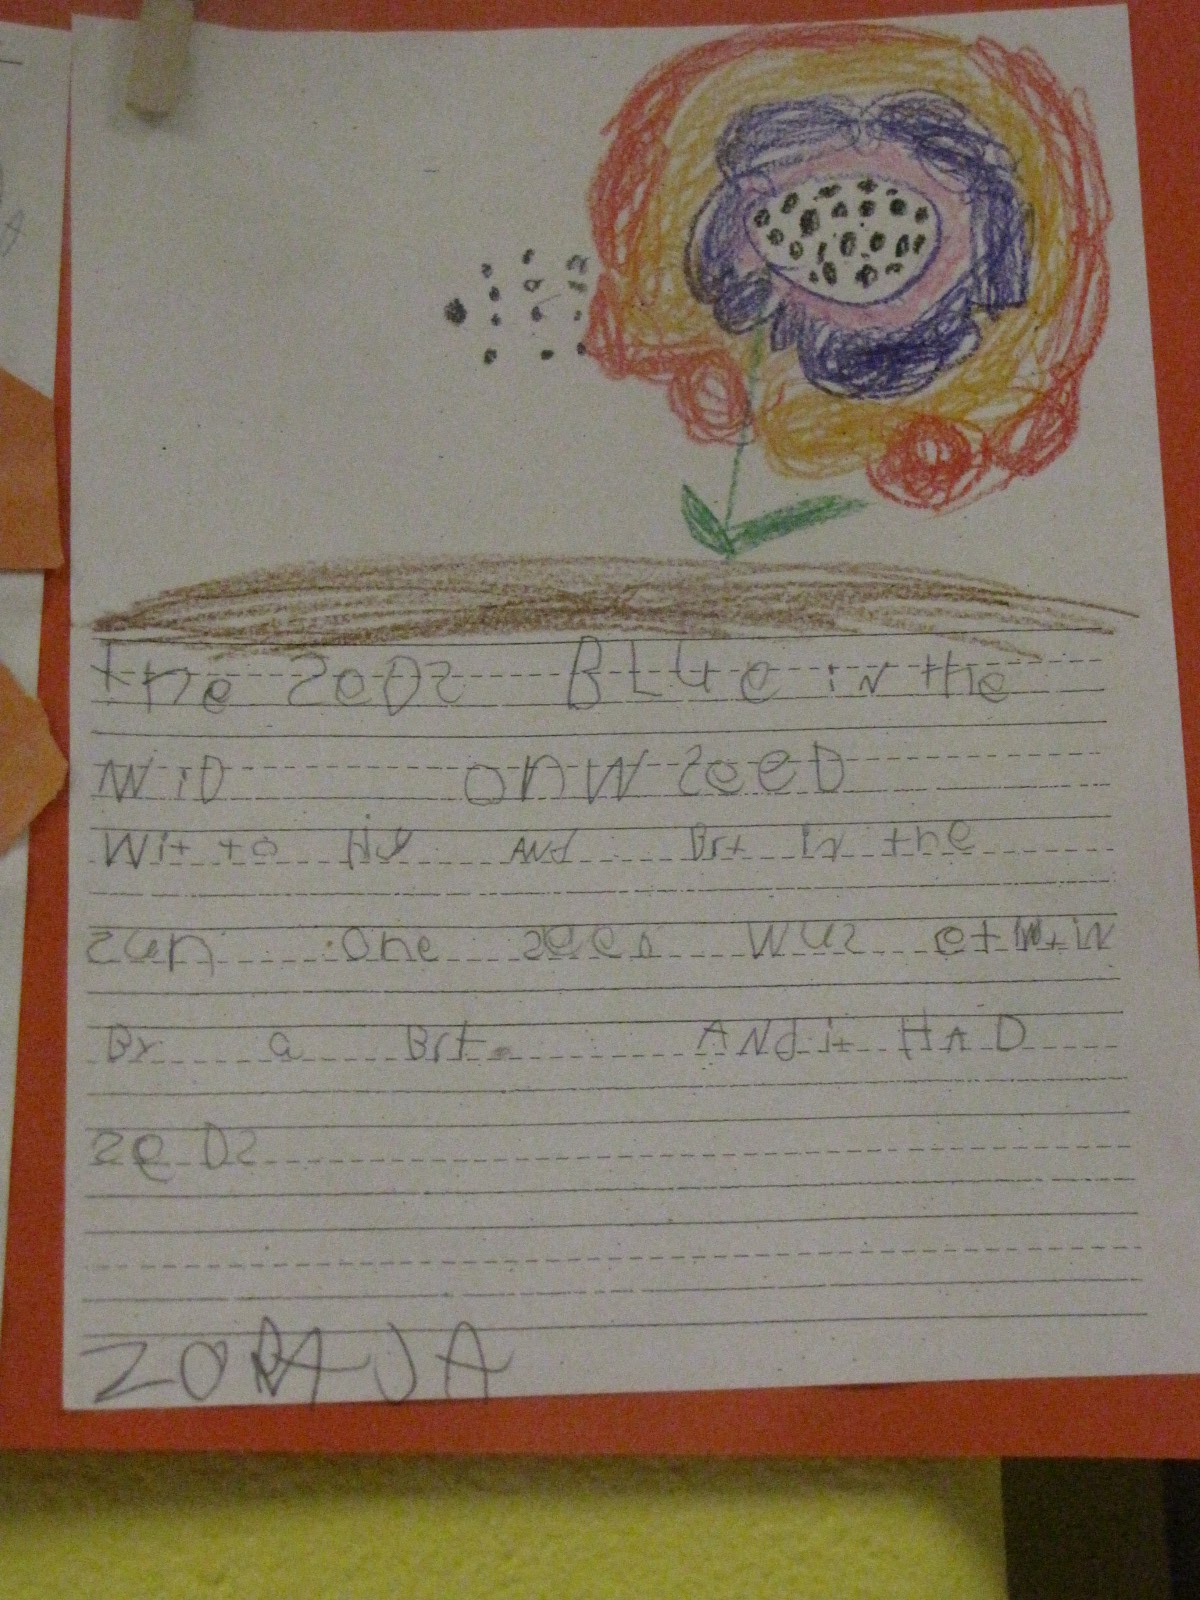 the seDs BLue in the
WiD onw seeD
Wit to Hie ANd Brt in the
sun one seed Wus etintin
By a Brt. ANd it HAD
seDs
ZORAJA